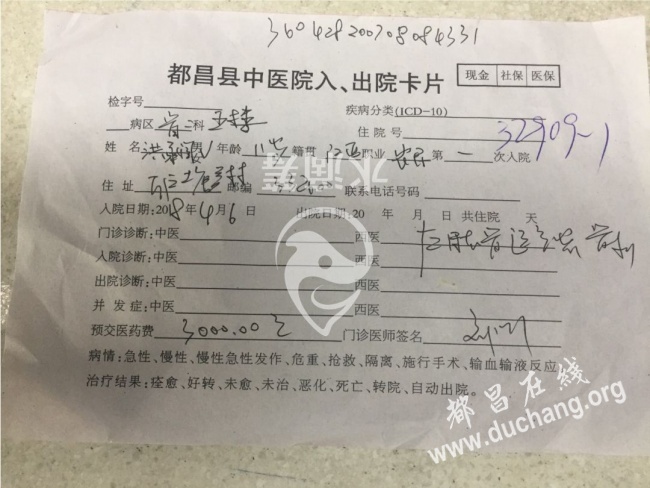 360428200708084331
都昌县中医院入、出院卡片
现金 社保 医保
检字号
疾病分类(ICD-10)
病区 骨二科
住院号 32909-1
姓名 男 年龄 11岁 籍贯 江西 职业 农民 第一次入院
住址 邮编 联系电话号码
入院日期:2018年4月6日 出院日期:20 年 月 日 共住院 天
门诊诊断:中医 西医
入院诊断:中医 西医
出院诊断:中医 西医
并发症:中医 西医
预交医药费 3000.00元 门诊医师签名
病情:急性、慢性、慢性急性发作、危重、抢救、隔离、施行手术、输血输液反应
治疗结果:痊愈、好转、未愈、未治、恶化、死亡、转院、自动出院。
水滴筹
都昌在线
www.duchang.org